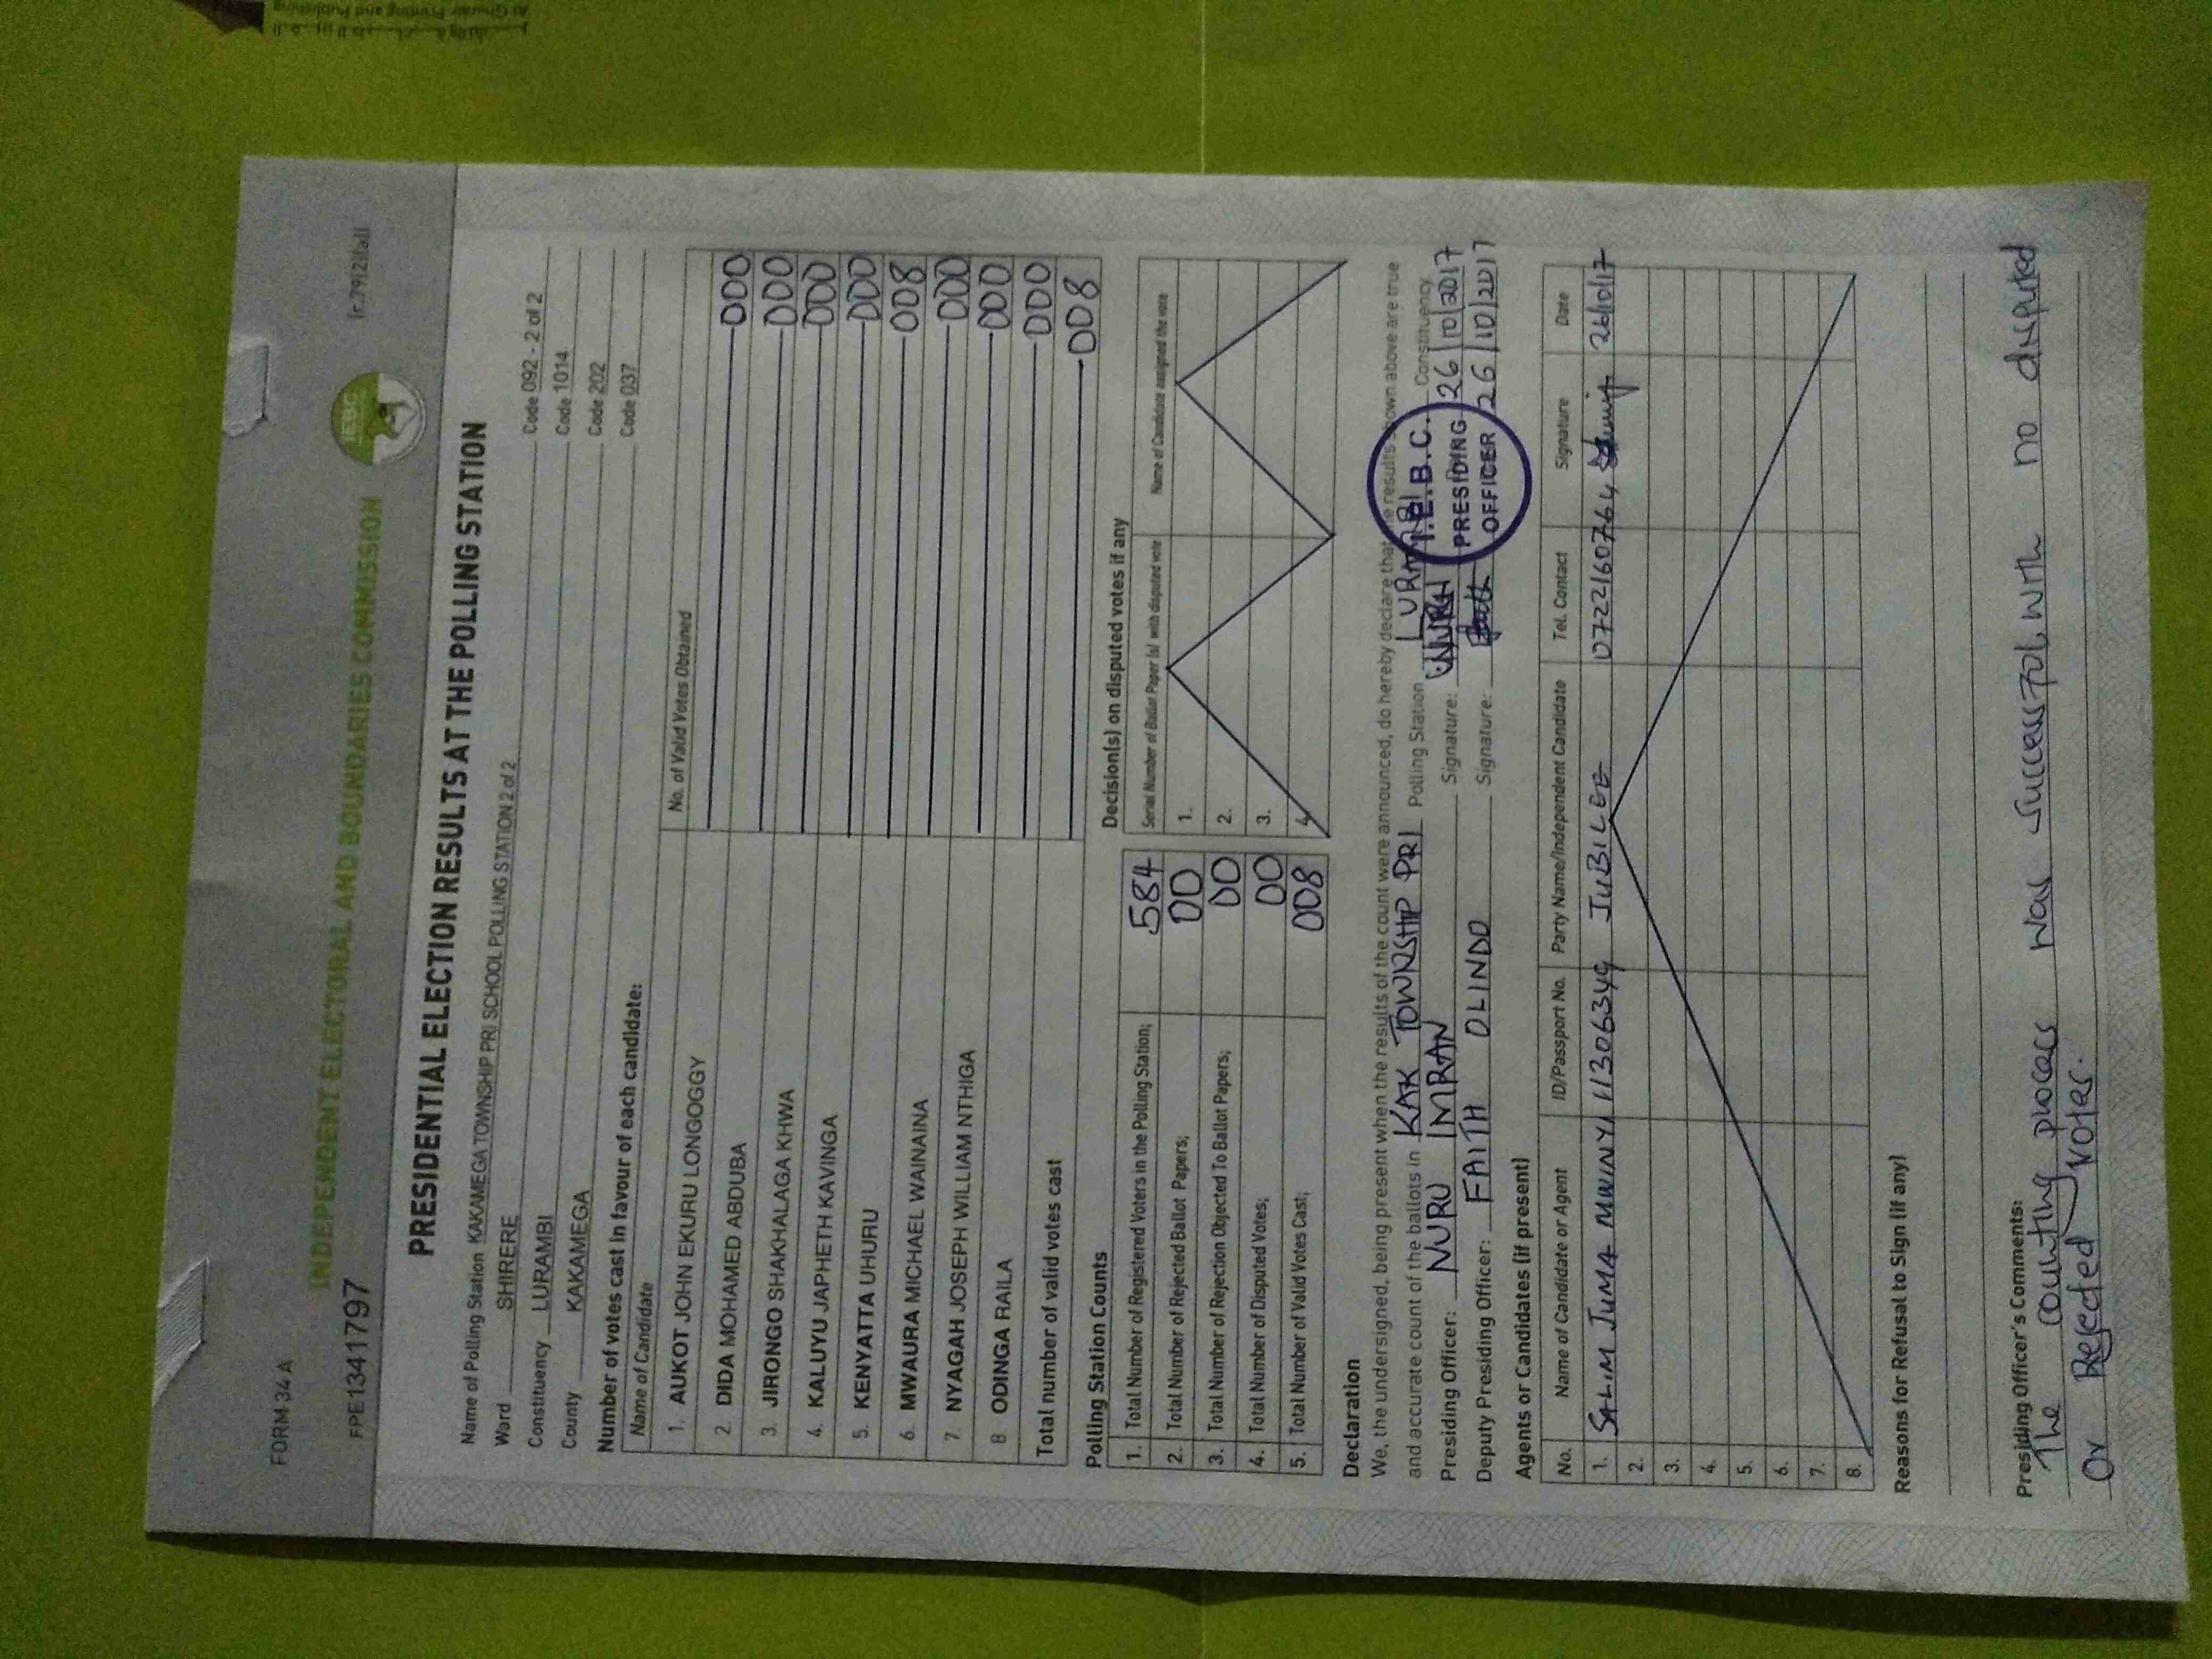 FORM 34 A
INDEPENDENT ELECTORAL AND BOUNDARIES COMMISSION
IEBC
FPE1341797
PRESIDENTIAL ELECTION RESULTS AT THE POLLING STATION
Name of Polling Station KAKAMEGA TOWNSHIP PRI SCHOOL POLLING STATION 2 of 2 Code 092 - 2 of 2
Ward SHIRERE Code 1014
Constituency LURAMBI Code 202
County KAKAMEGA Code 037
Number of votes cast in favour of each candidate:
Name of Candidate No. of Valid Votes Obtained
1. AUKOT JOHN EKURU LONGOGGY 000
2. DIDA MOHAMED ABDUBA 000
3. JIRONGO SHAKHALAGA KHWA 000
4. KALUYU JAPHETH KAVINGA 000
5. KENYATTA UHURU 008
6. MWAURA MICHAEL WAINAINA 000
7. NYAGAH JOSEPH WILLIAM NTHIGA 000
8 ODINGA RAILA 000
Total number of valid votes cast 008
Polling Station Counts
1. Total Number of Registered Voters in the Polling Station; 584
2. Total Number of Rejected Ballot Papers; 00
3. Total Number of Rejection Objected To Ballot Papers; 00
4. Total Number of Disputed Votes; 00
5. Total Number of Valid Votes Cast; 008
Decision(s) on disputed votes if any
Serial Number of Ballot Paper (s) with disputed vote Name of Candidate assigned the vote
1.
2.
3.
4
Declaration
We, the undersigned, being present when the results of the count were announced, do hereby declare that the results shown above are true
and accurate count of the ballots in KAK TOWNSHIP PRI Polling Station LURAMBI Constituency
Presiding Officer: NURU IMRAN Signature: NURU 26/10/2017
Deputy Presiding Officer: FAITH OLINDO Signature: Faith 26/10/2017
I.E.B.C.
PRESIDING
OFFICER
Agents or Candidates (if present)
No. Name of Candidate or Agent ID/Passport No. Party Name/Independent Candidate Tel. Contact Signature Date
1. SALIM JUMA MWINYI 11306349 JUBILEE 0722160764 26/10/17
2.
3.
4.
5.
6.
7.
8.
Reasons for Refusal to Sign (if any)
Presiding Officer's Comments:
The counting process was successful with no disputed
or Rejected votes.